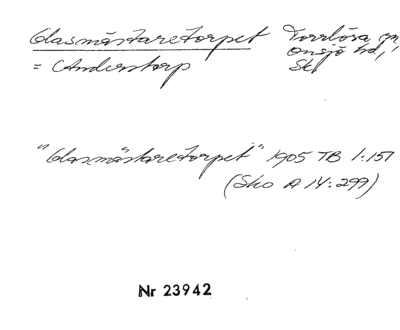 Glasmästaretorpet Torrlösa sn,
= Anderstorp Onsjö hd,
Sk.
"Glasmästaretorpet" 1905 TB 1:157
(Sko A 14:299)
Nr 23942